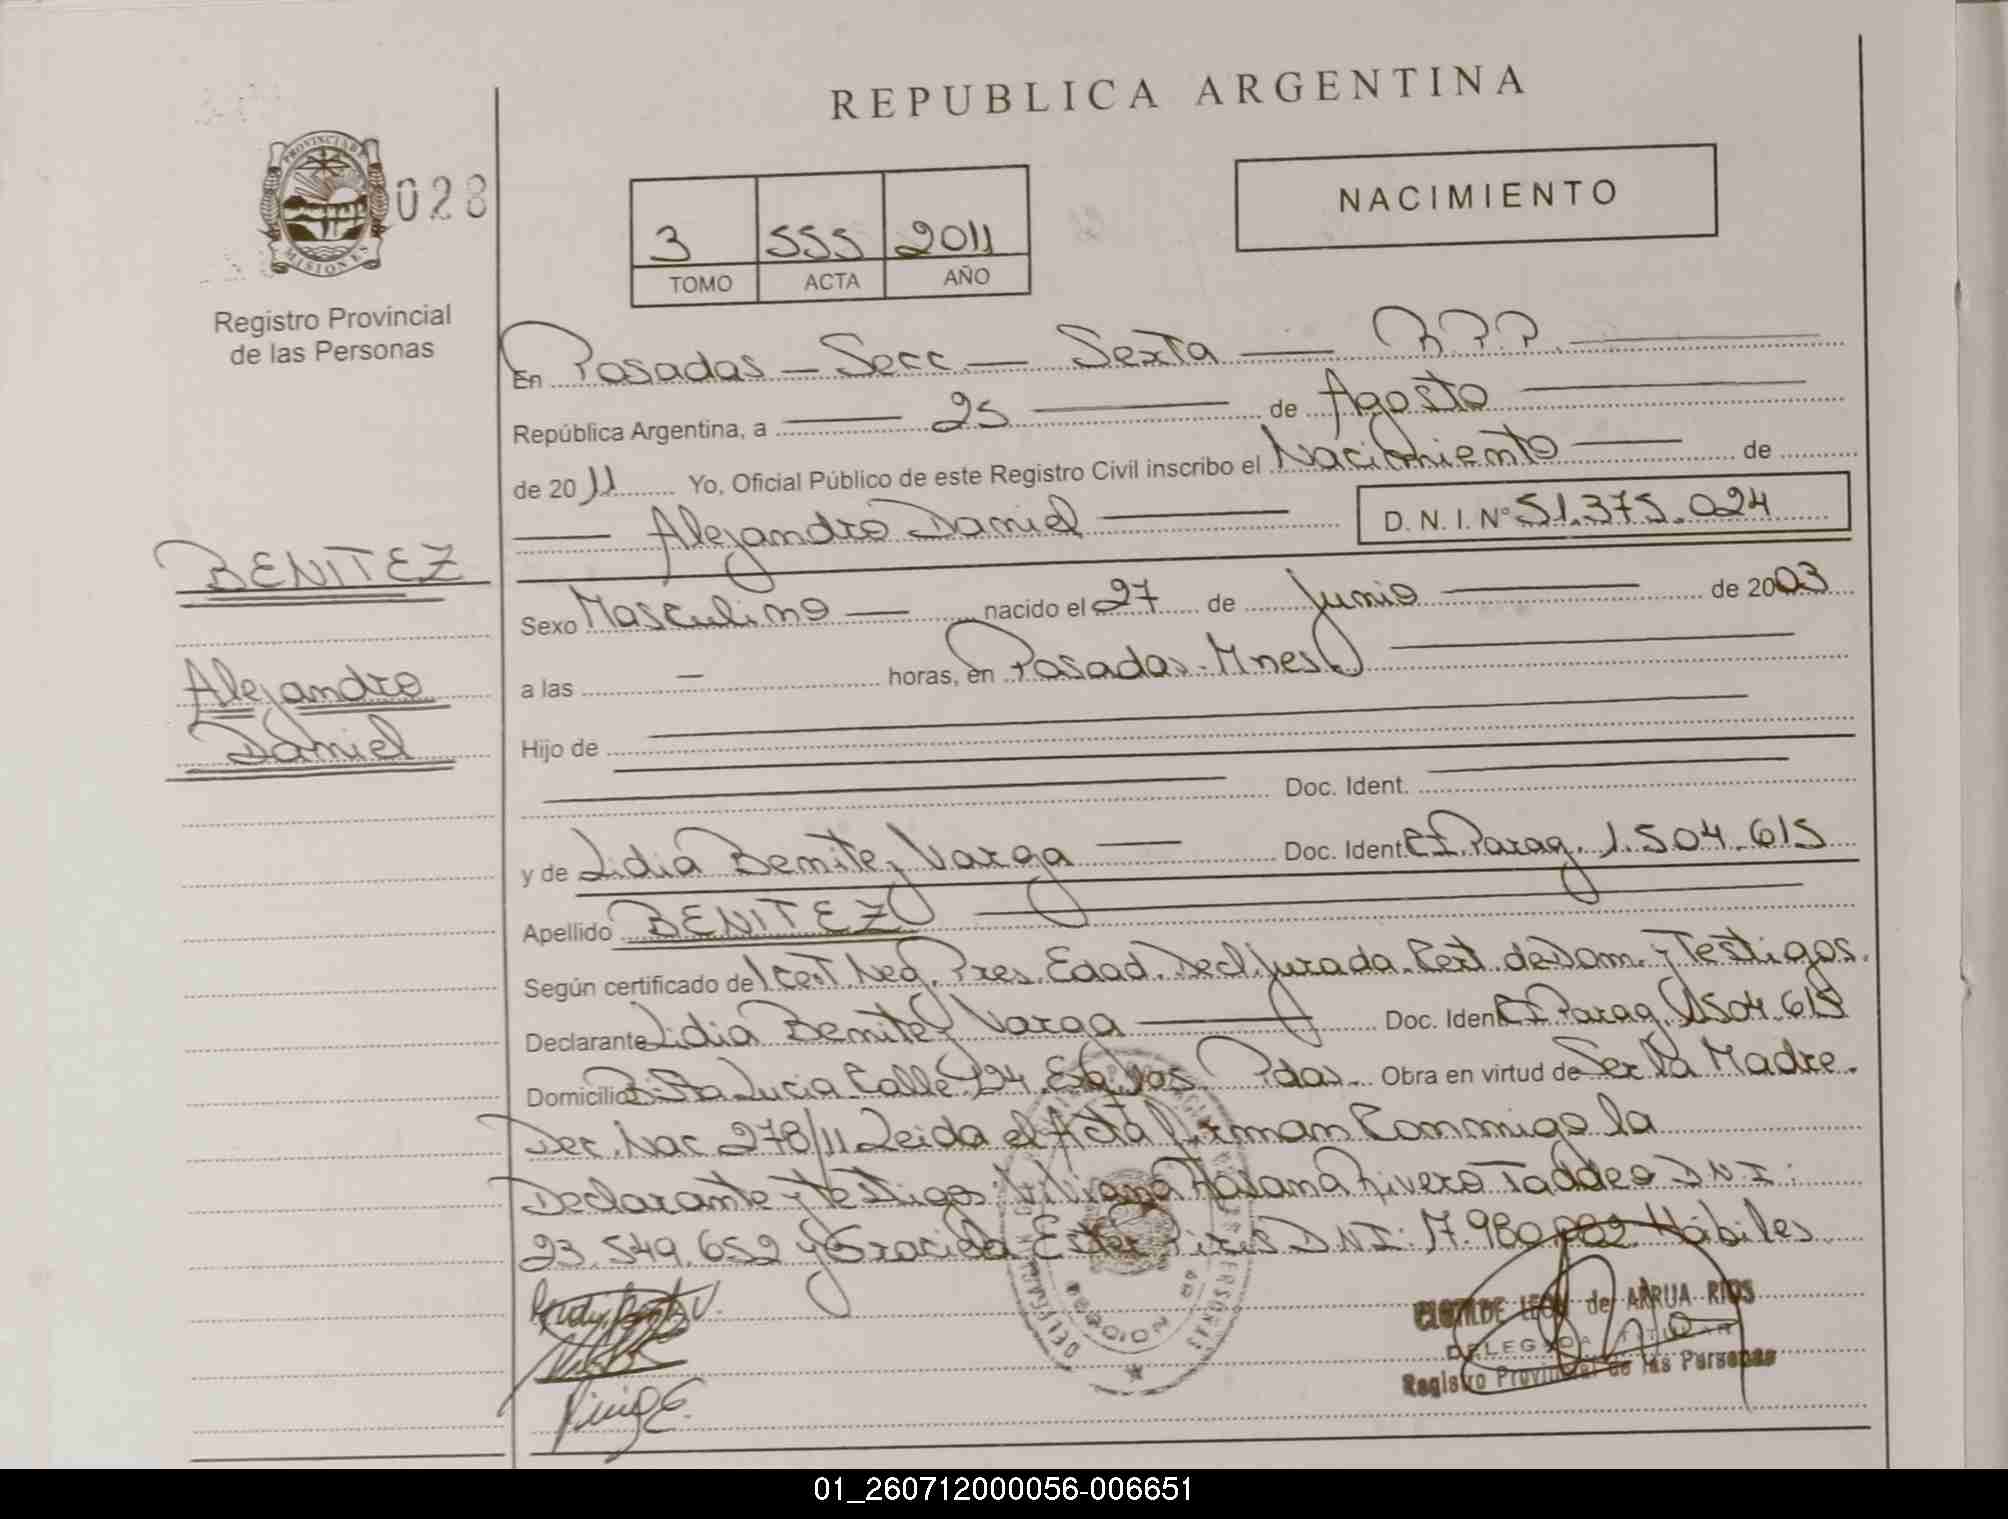 REPUBLICA ARGENTINA
PROVINCIA DE MISIONES
028
Registro Provincial
de las Personas
3 555 2011
TOMO ACTA AÑO
NACIMIENTO
En Posadas - Secc - Sexta - R.P.P.
República Argentina, a 25 de Agosto
de 2011 Yo, Oficial Público de este Registro Civil inscribo el Nacimiento de
Alejandro Daniel D. N. I. Nº 51.375.024
BENITEZ
Alejandro
Daniel
Sexo Masculino nacido el 27 de Junio de 2003
a las - horas, en Posadas. Mnes.
Hijo de
Doc. Ident.
y de Lidia Benitez Varga Doc. Ident. CI Parag. 1.504.615
Apellido BENITEZ
Según certificado de 1 Cert. Neg. Pres. Edad. Decl. Jurada. Cert. de Dom. y Testigos.
Declarante Lidia Benitez Varga Doc. Ident. CI Parag. 1504.615
Domicilio B: Sta Lucia Calle 124 Esq. Pdas. Obra en virtud de Ser la Madre.
Dec. Nac 278/11 Leida el Acta firman Conmigo la
Declarante y testigos: Rivero Taddeo D.N.I:
23.549.652 y Graciela Ester Piris D.N.I: 17.980.992 Hábiles
CLOTILDE LEON de ARRUA RIOS
DELEGADA TITULAR
Registro Provincial de las Personas
01_260712000056-006651